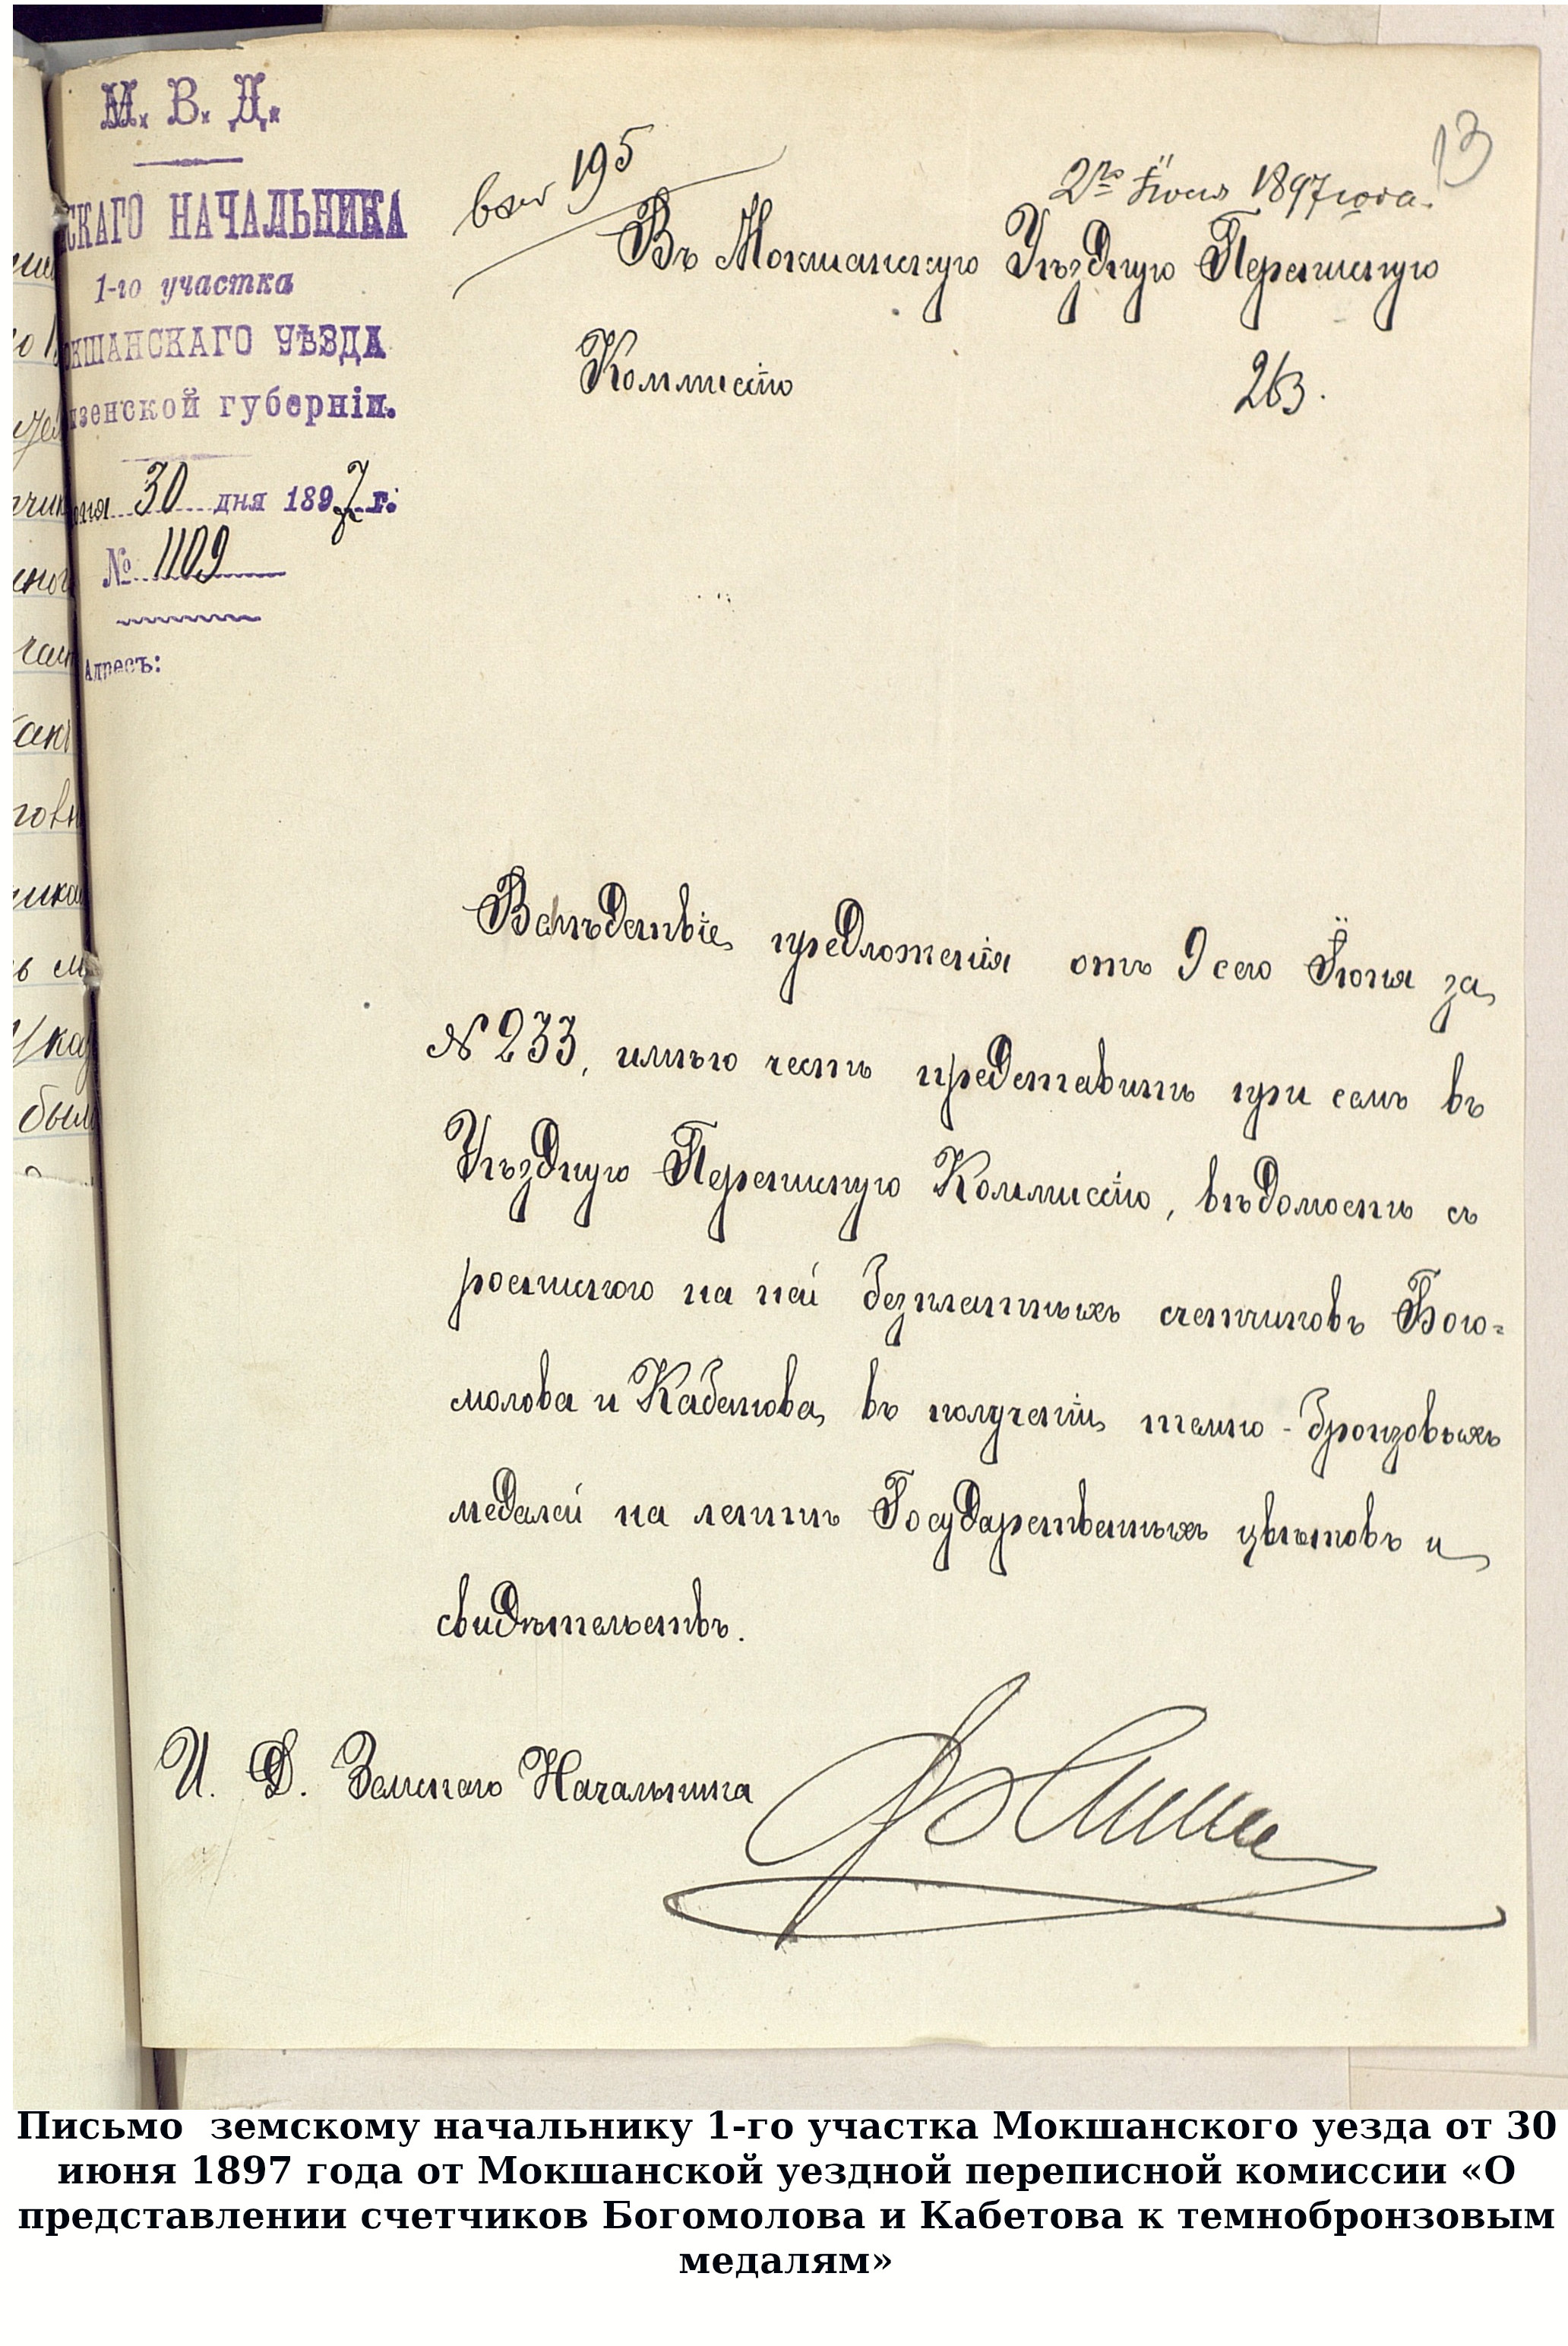 М. В. Д.
СКАГО НАЧАЛЬНИКА
1-го участка
КШАНСКАГО УѢЗДА
зенской губерніи.
30 дня 1897 г.
№ 1109
Адресъ:
13
195
2го Іюля 1897 года.
Въ Мокшанскую Уѣздную Переписную
Коммиссію
263.
Вслѣдствіе предложенія отъ 9 сего Іюня за
№ 233, имѣю честь представить при семъ въ
Уѣздную Переписную Коммиссію, вѣдомость съ
роспиского на ней безплатныхъ счетчиковъ Бого-
молова и Кабетова въ полученіи темно-бронзовыхъ
медалей на лентѣ Государственныхъ цвѣтовъ и
свидѣтельствъ.
И. Д. Земскаго Начальника
Письмо земскому начальнику 1-го участка Мокшанского уезда от 30
июня 1897 года от Мокшанской уездной переписной комиссии «О
представлении счетчиков Богомолова и Кабетова к темнобронзовым
медалям»